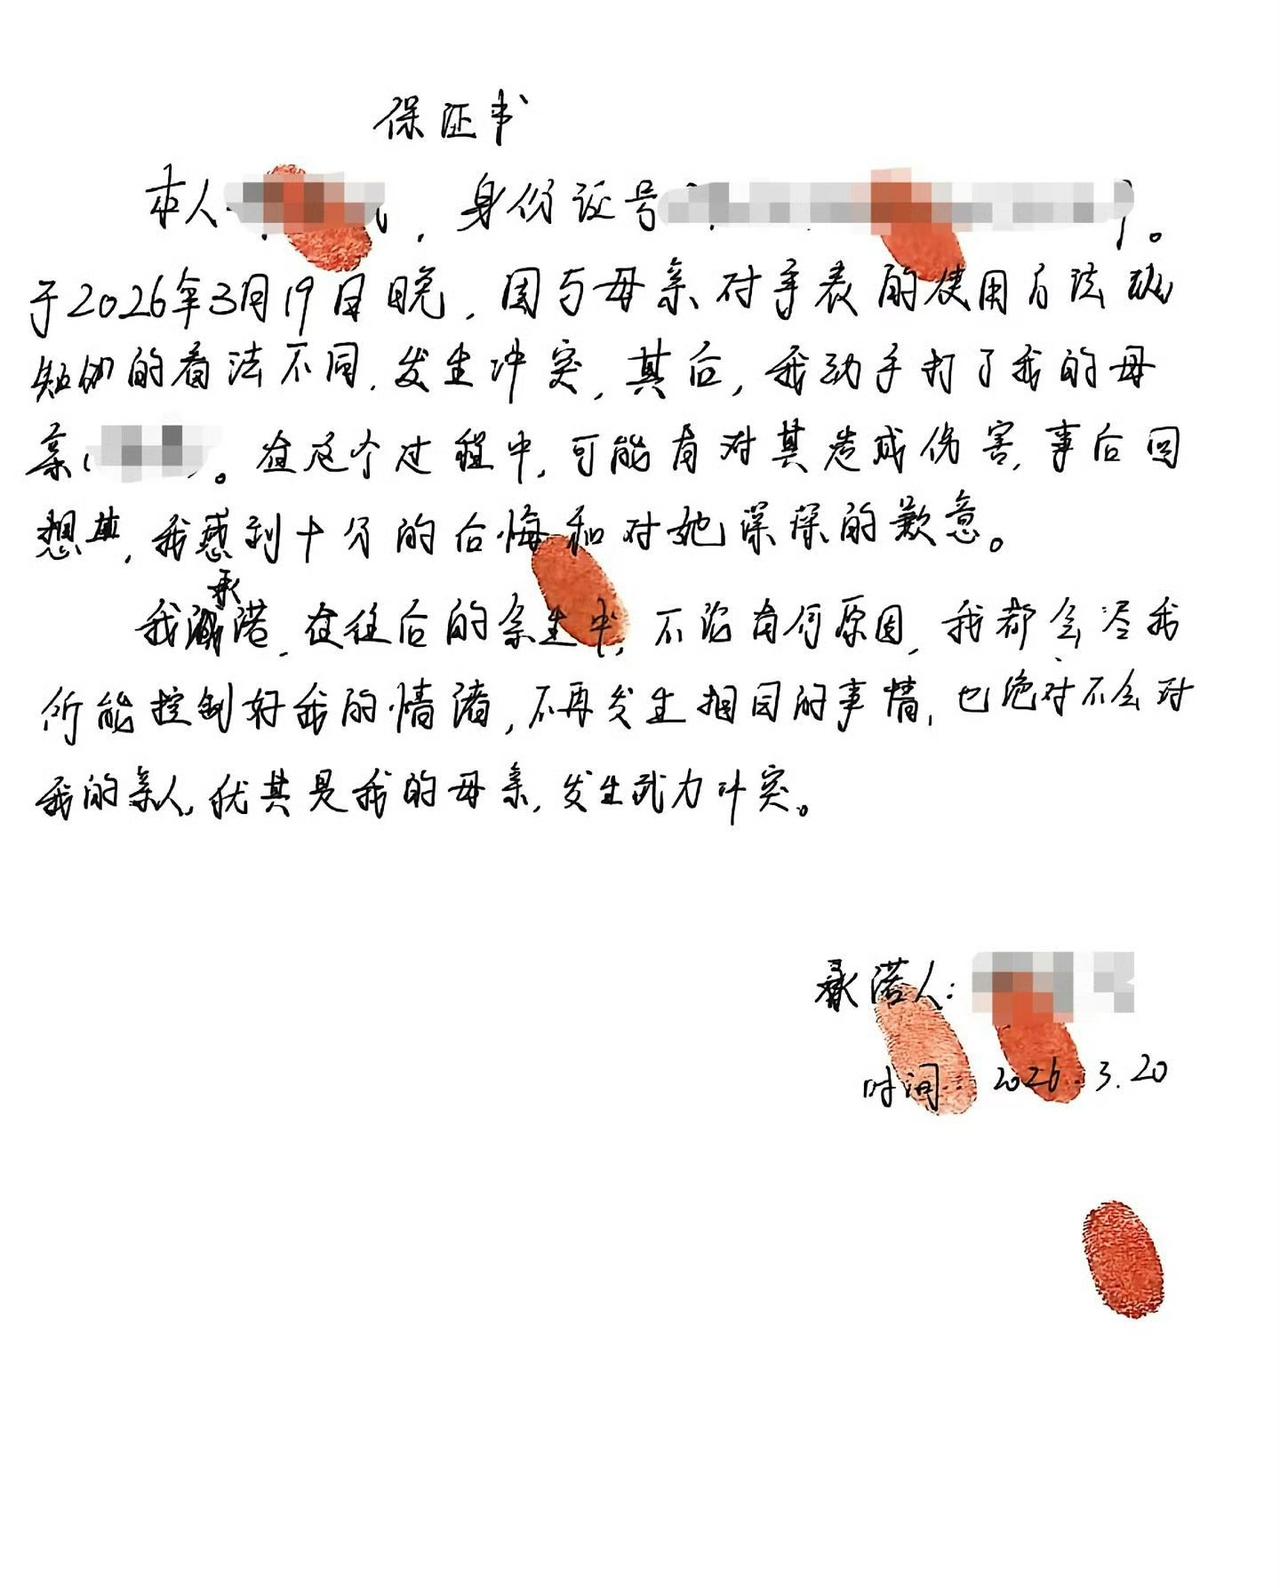 保证书
本人，身份证号。
于2026年3月19日晚，因与母亲对手表的使用方法
的看法不同，发生冲突，其后，我动手打了我的母
亲（）。在这个过程中，可能有对其造成伤害，事后回
想其，我感到十分的后悔和对她深深的歉意。
我承诺，在往后的余生中，不论有何原因，我都会尽我
所能控制好我的情绪，不再发生相同的事情，也绝对不会对
我的亲人，优其是我的母亲，发生武力冲突。
承诺人：
时间：2026.3.20